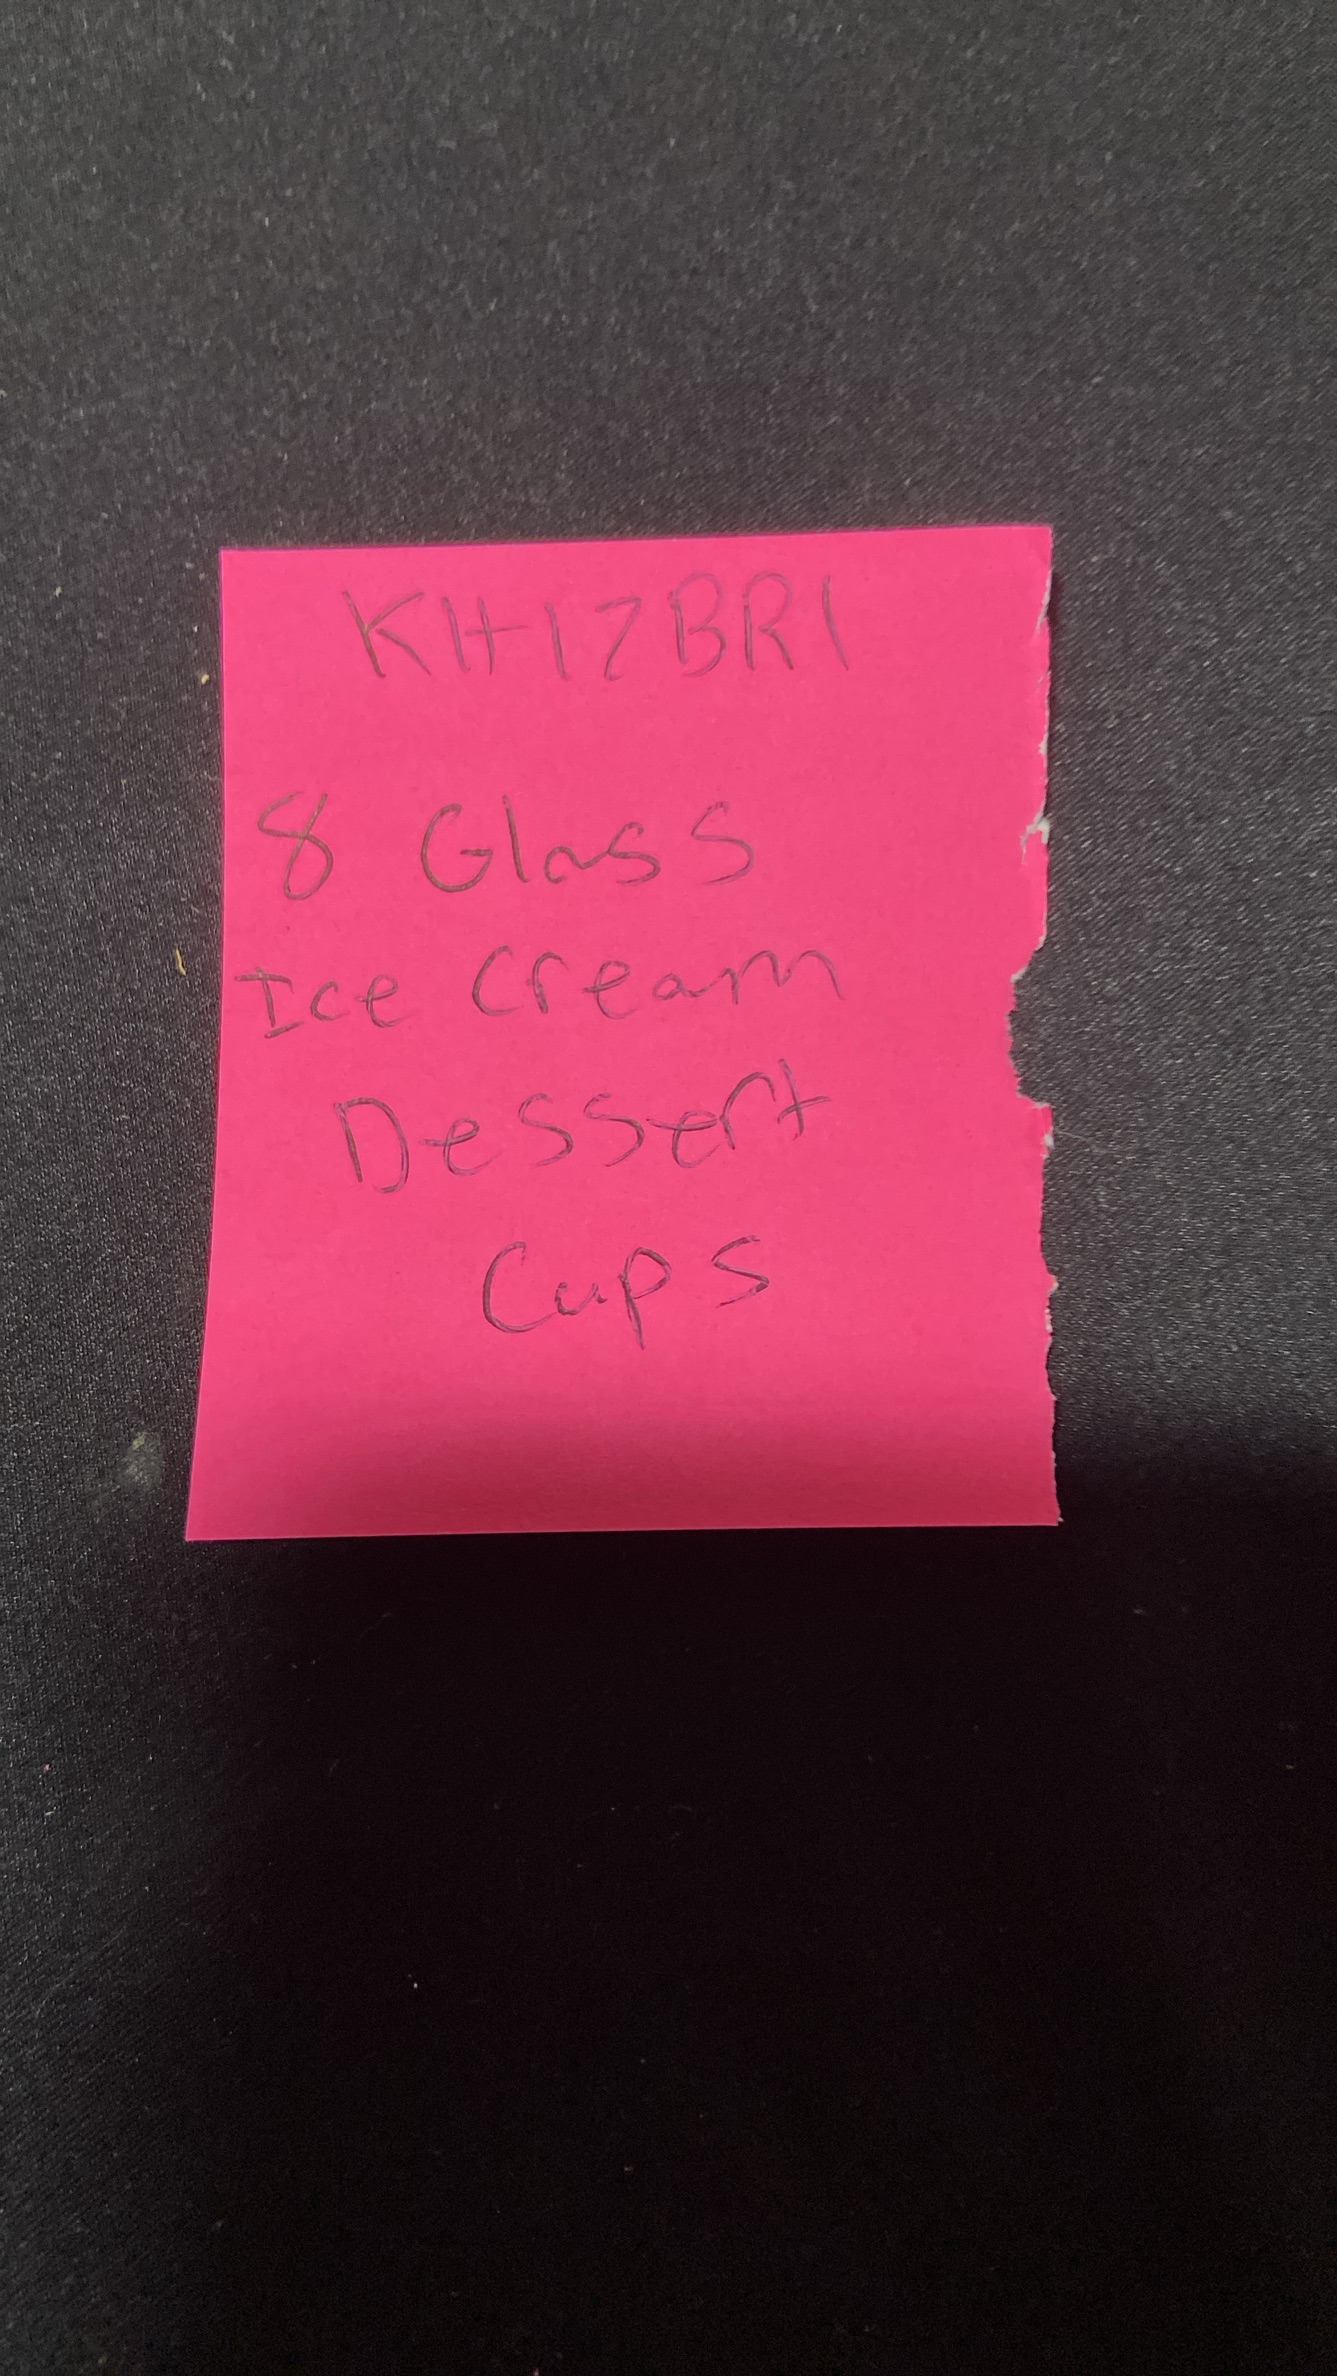 KH17BR1
8 Glass
Ice cream
Dessert
Cups